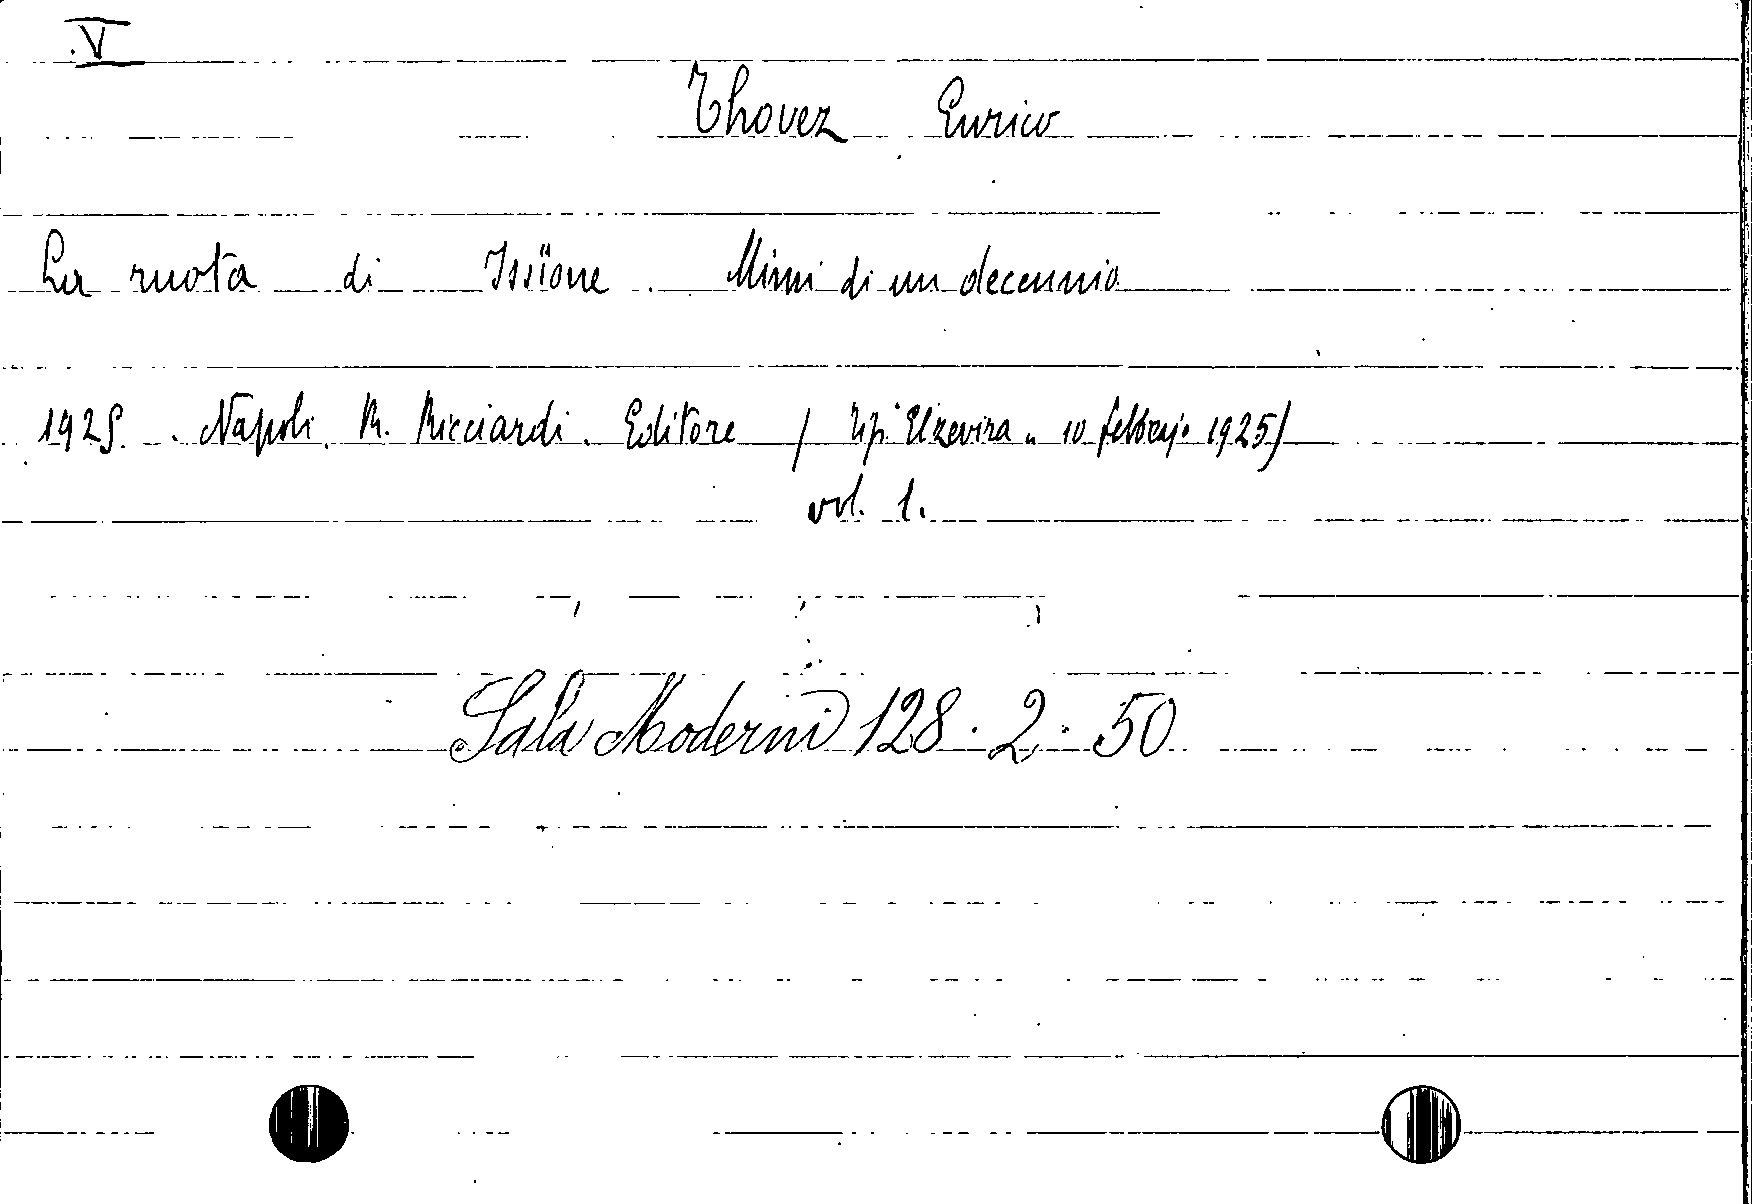 V
Thovez Enrico
La ruota di Issïone. Mimi di un decennio
1925. Napoli. R. Ricciardi. Editore / Tip. Elzevira " 10 febbrajo 1925/
vol. 1.
Sala Moderni 128.2.50